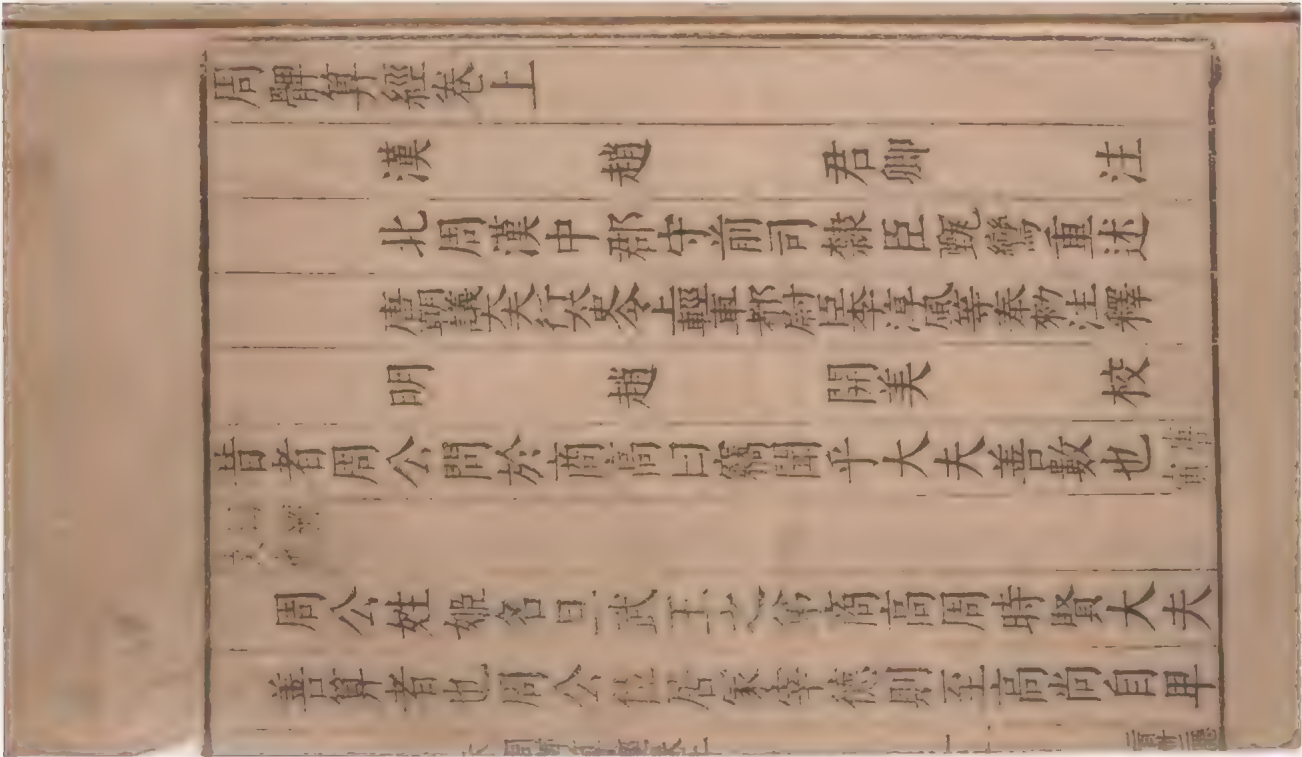 周髀算經卷上
漢 趙 君卿 注
北周漢中郡守前司隸臣甄鸞重述
唐朝議大夫行太史令上輕車都尉臣李淳風等奉勅注釋
明 趙 開美 校
昔者周公問於商高曰竊聞乎大夫善數也
周公姓姬名旦武王之弟商高周時賢大夫
善算者也周公位居冢宰德則至高尚自卑